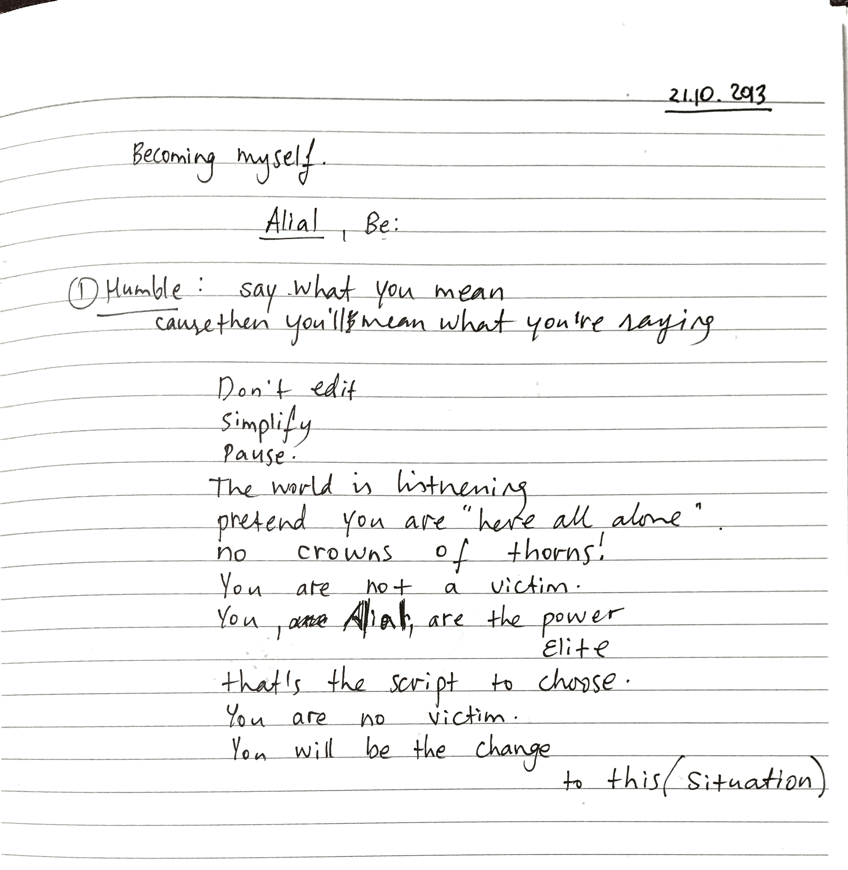 21.10.2013
Becoming myself.
Alial, Be:
① Humble: say what you mean
cause then you'll mean what you're saying
Don't edit
Simplify
Pause.
The world is listnening
pretend you are "here all alone".
no crowns of thorns!
You are not a victim.
You, are Alial, are the power
Elite
that's the script to choose.
You are no victim.
You will be the change
to this (situation)